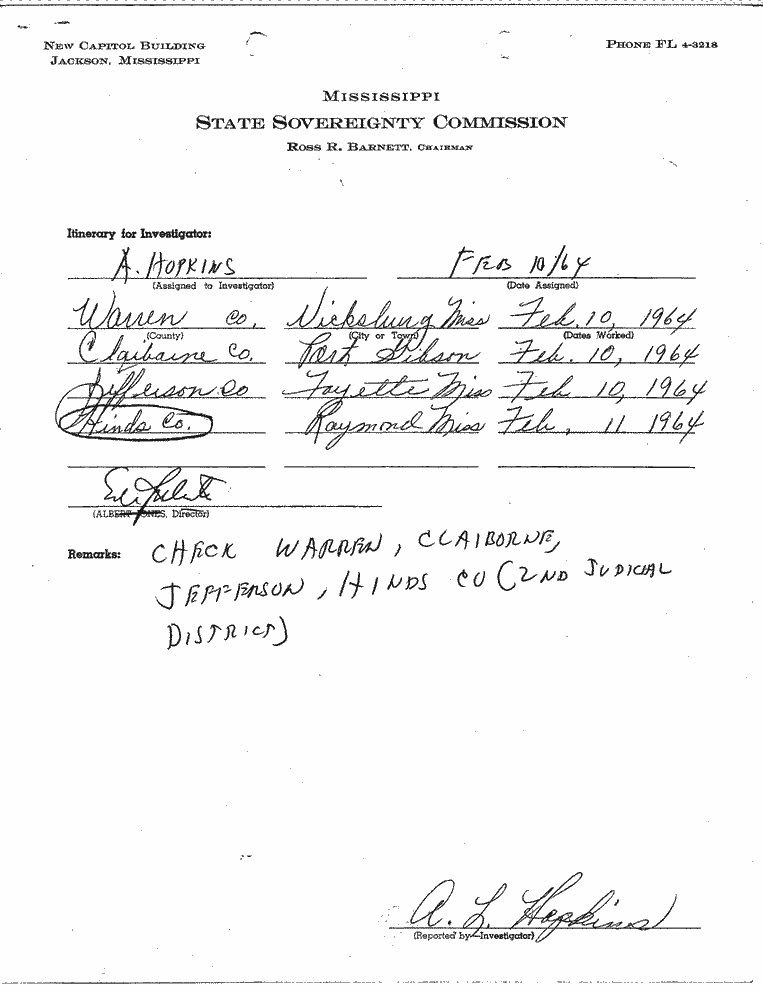 NEW CAPITOL BUILDING
JACKSON, MISSISSIPPI
PHONE FL 4-3218
MISSISSIPPI
STATE SOVEREIGNTY COMMISSION
ROSS R. BARNETT, CHAIRMAN
Itinerary for Investigator:
A. HOPKINS FEB 10/64
(Assigned to Investigator) (Date Assigned)
Warren Co. Vicksburg Miss Feb. 10, 1964
(County) (City or Town) (Dates Worked)
Claibaine Co. Port Gibson Feb. 10, 1964
Jefferson Co Fayette Miss Feb 10, 1964
Hinds Co. Raymond Miss Feb. 11 1964
(ALBERT JONES, Director)
Remarks: CHECK WARREN, CLAIBORNE,
JEFFERSON, HINDS CO (2ND JUDICIAL
DISTRICT)
A. L. Hopkins
(Reported by—Investigator)